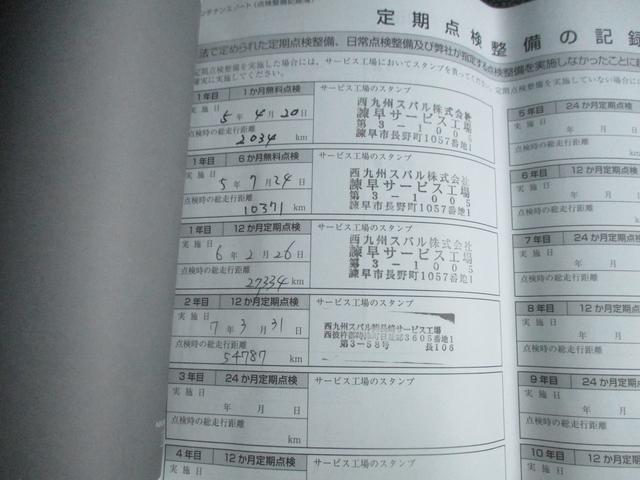 ンテナンスノート（点検整備記録簿）
定期点検整備の記録
法で定められた定期点検整備、日常点検整備及び弊社が指定する点検整備を実施しなかったことに
定期点検整備を実施した場合には、サービス工場においてスタンプを貰ってください。定期点検整備を実施していない場合には
確実に実施してください。
1年目 1か月無料点検 サービス工場のスタンプ
実施日
5年4月20日
点検時の総走行距離
2034 km
西九州スバル株式会社
諫早サービス工場
第3-1005
諫早市長野町1057番地1
1年目 6か月無料点検 サービス工場のスタンプ
実施日
5年7月24日
点検時の総走行距離
10371 km
西九州スバル株式会社
諫早サービス工場
第3-1005
諫早市長野町1057番地1
1年目 12か月定期点検 サービス工場のスタンプ
実施日
6年2月26日
点検時の総走行距離
27334 km
西九州スバル株式会社
諫早サービス工場
第3-1005
諫早市長野町1057番地1
2年目 12か月定期点検 サービス工場のスタンプ
実施日
7年3月31日
点検時の総走行距離
54787 km
西九州スバル㈱長崎サービス工場
西彼杵郡時津町日並郷3605番地1
第3-58号 長106
3年目 24か月定期点検 サービス工場のスタンプ
実施日
年 月 日
点検時の総走行距離
km
4年目 12か月定期点検 サービス工場のスタンプ
実施日
5年目 24か月定期点
実施日
年 月
点検時の総走行距離
6年目 12か月定期点
実施日
年 月
点検時の総走行距離
7年目 24か月定期点
実施日
年 月
点検時の総走行距離
8年目 12か月定期
実施日
年 月
点検時の総走行距離
9年目 24か月定期
実施日
年 月
点検時の総走行距離
10年目 12か月定
実施日